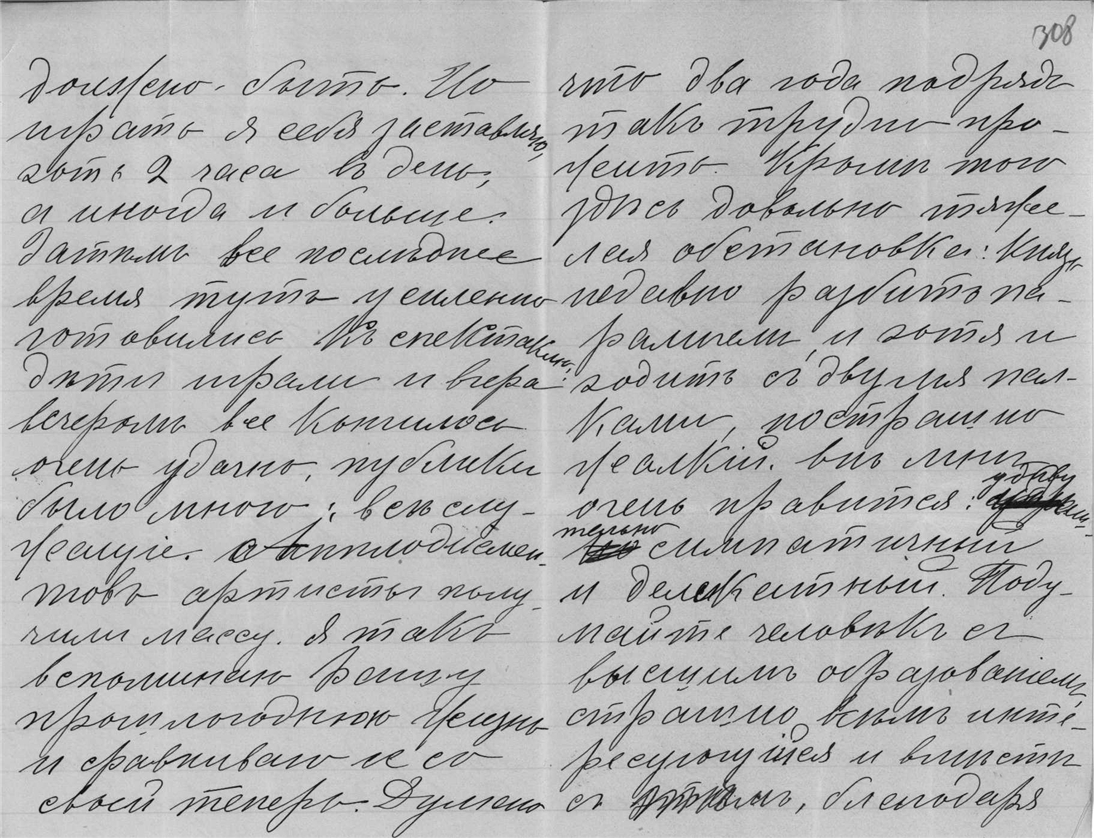 должно быть. Но
играть я себя заставляю,
хоть 2 часа въ день,
а иногда и больше.
Затѣмъ все послѣднее
время тутъ усиленно
готовились къ спектаклю:
дѣти играли и вчера
вечеромъ все кончилось
очень удачно, публики
было много; все слу-
жащіе. Апплодисмен-
товъ артисты полу-
чили массу. Я такъ
вспоминаю Вашу
прошлогоднюю жизнь
и сравниваю ее со
своей теперь. Думаю
308
что два года подрядъ
такъ трудно про-
жить. Кромѣ того
здѣсь довольно тяже-
лая обстановка: Князь
недавно разбитъ па-
раличемъ, и хотя и
ходитъ съ двумя пал-
ками, но страшно
жалкій. Онъ мнѣ
очень нравится: удиви-
тельно симпатичный
и деликатный. Поду-
майте человѣкъ съ
высшимъ образованіемъ,
страшно всѣмъ инте-
ресующійся и вмѣстѣ
съ этимъ, благодаря